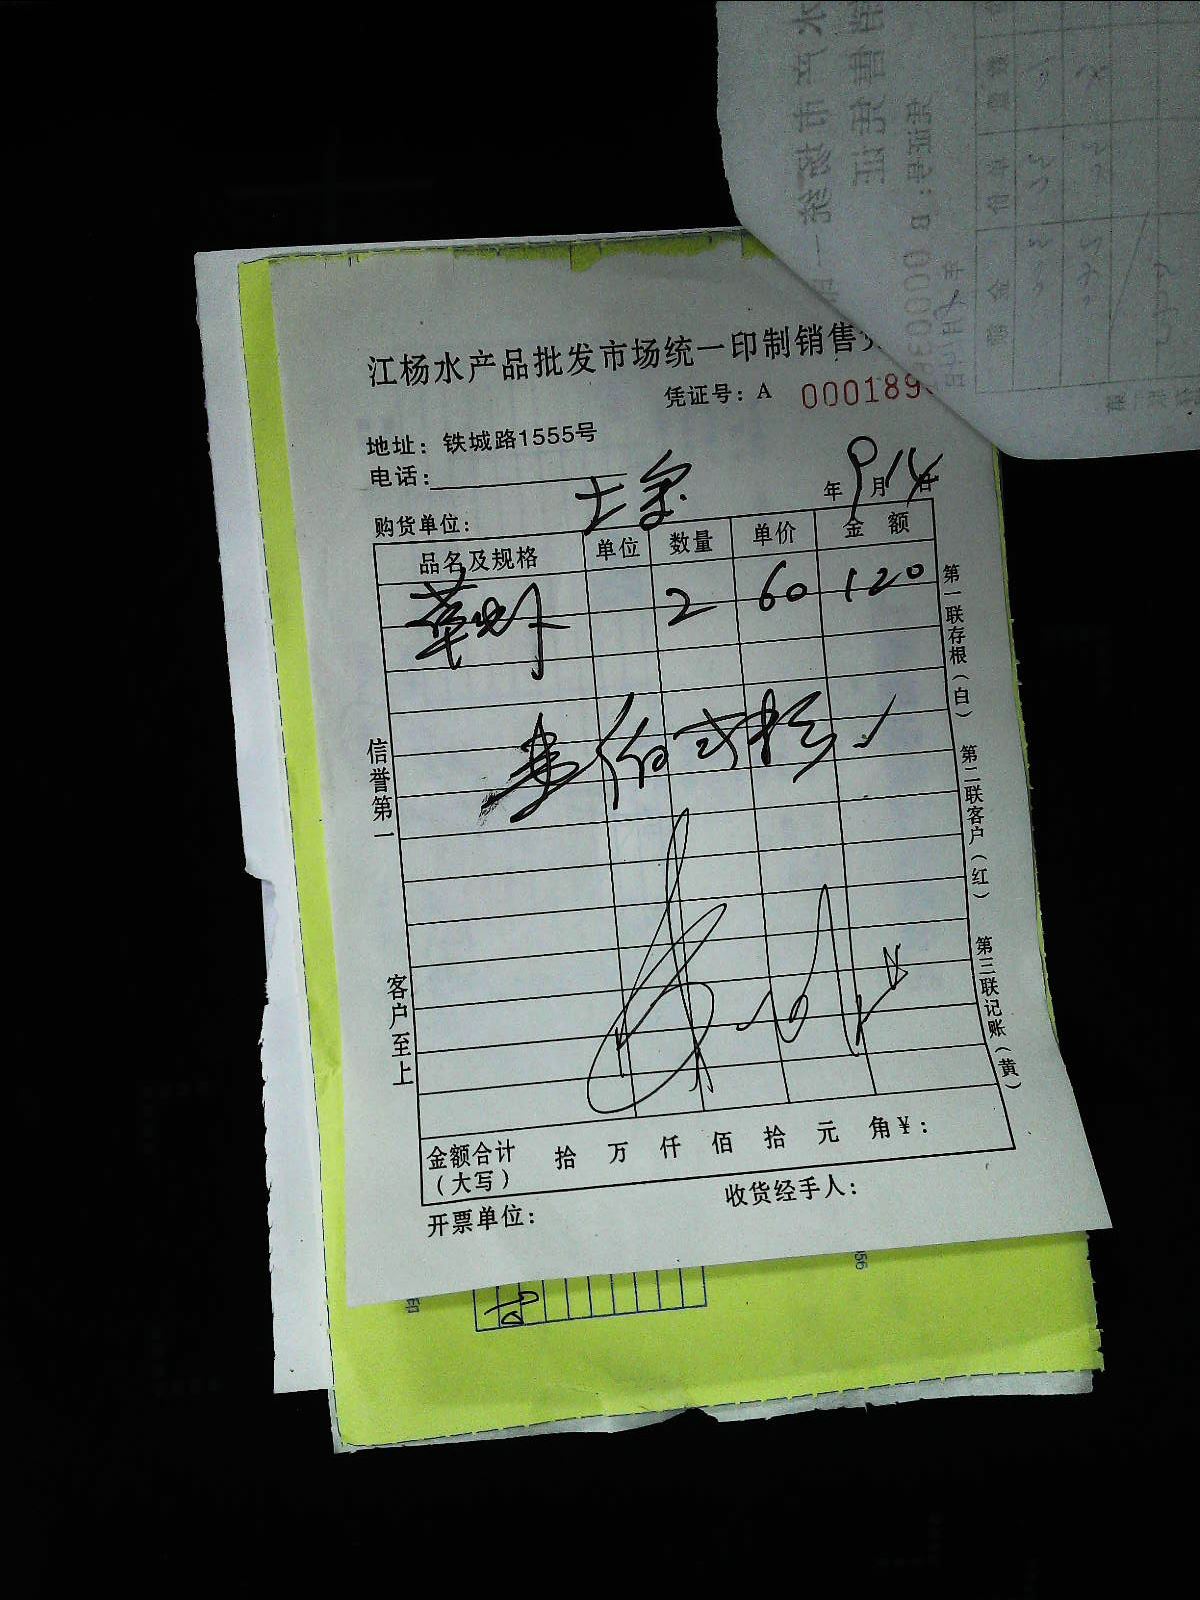 江杨水产品批发市场统一印制销售
凭证号：A 000189
地址：铁城路1555号
电话：
年 9 月 14 日
购货单位：
品名及规格 单位 数量 单价 金 额
草虾 2 60 120
壹佰贰拾
信誉第一
客户至上
第一联存根（白）
第二联客户（红）
第三联记账（黄）
金额合计（大写） 拾 万 仟 佰 拾 元 角 ¥：
开票单位：
收货经手人：